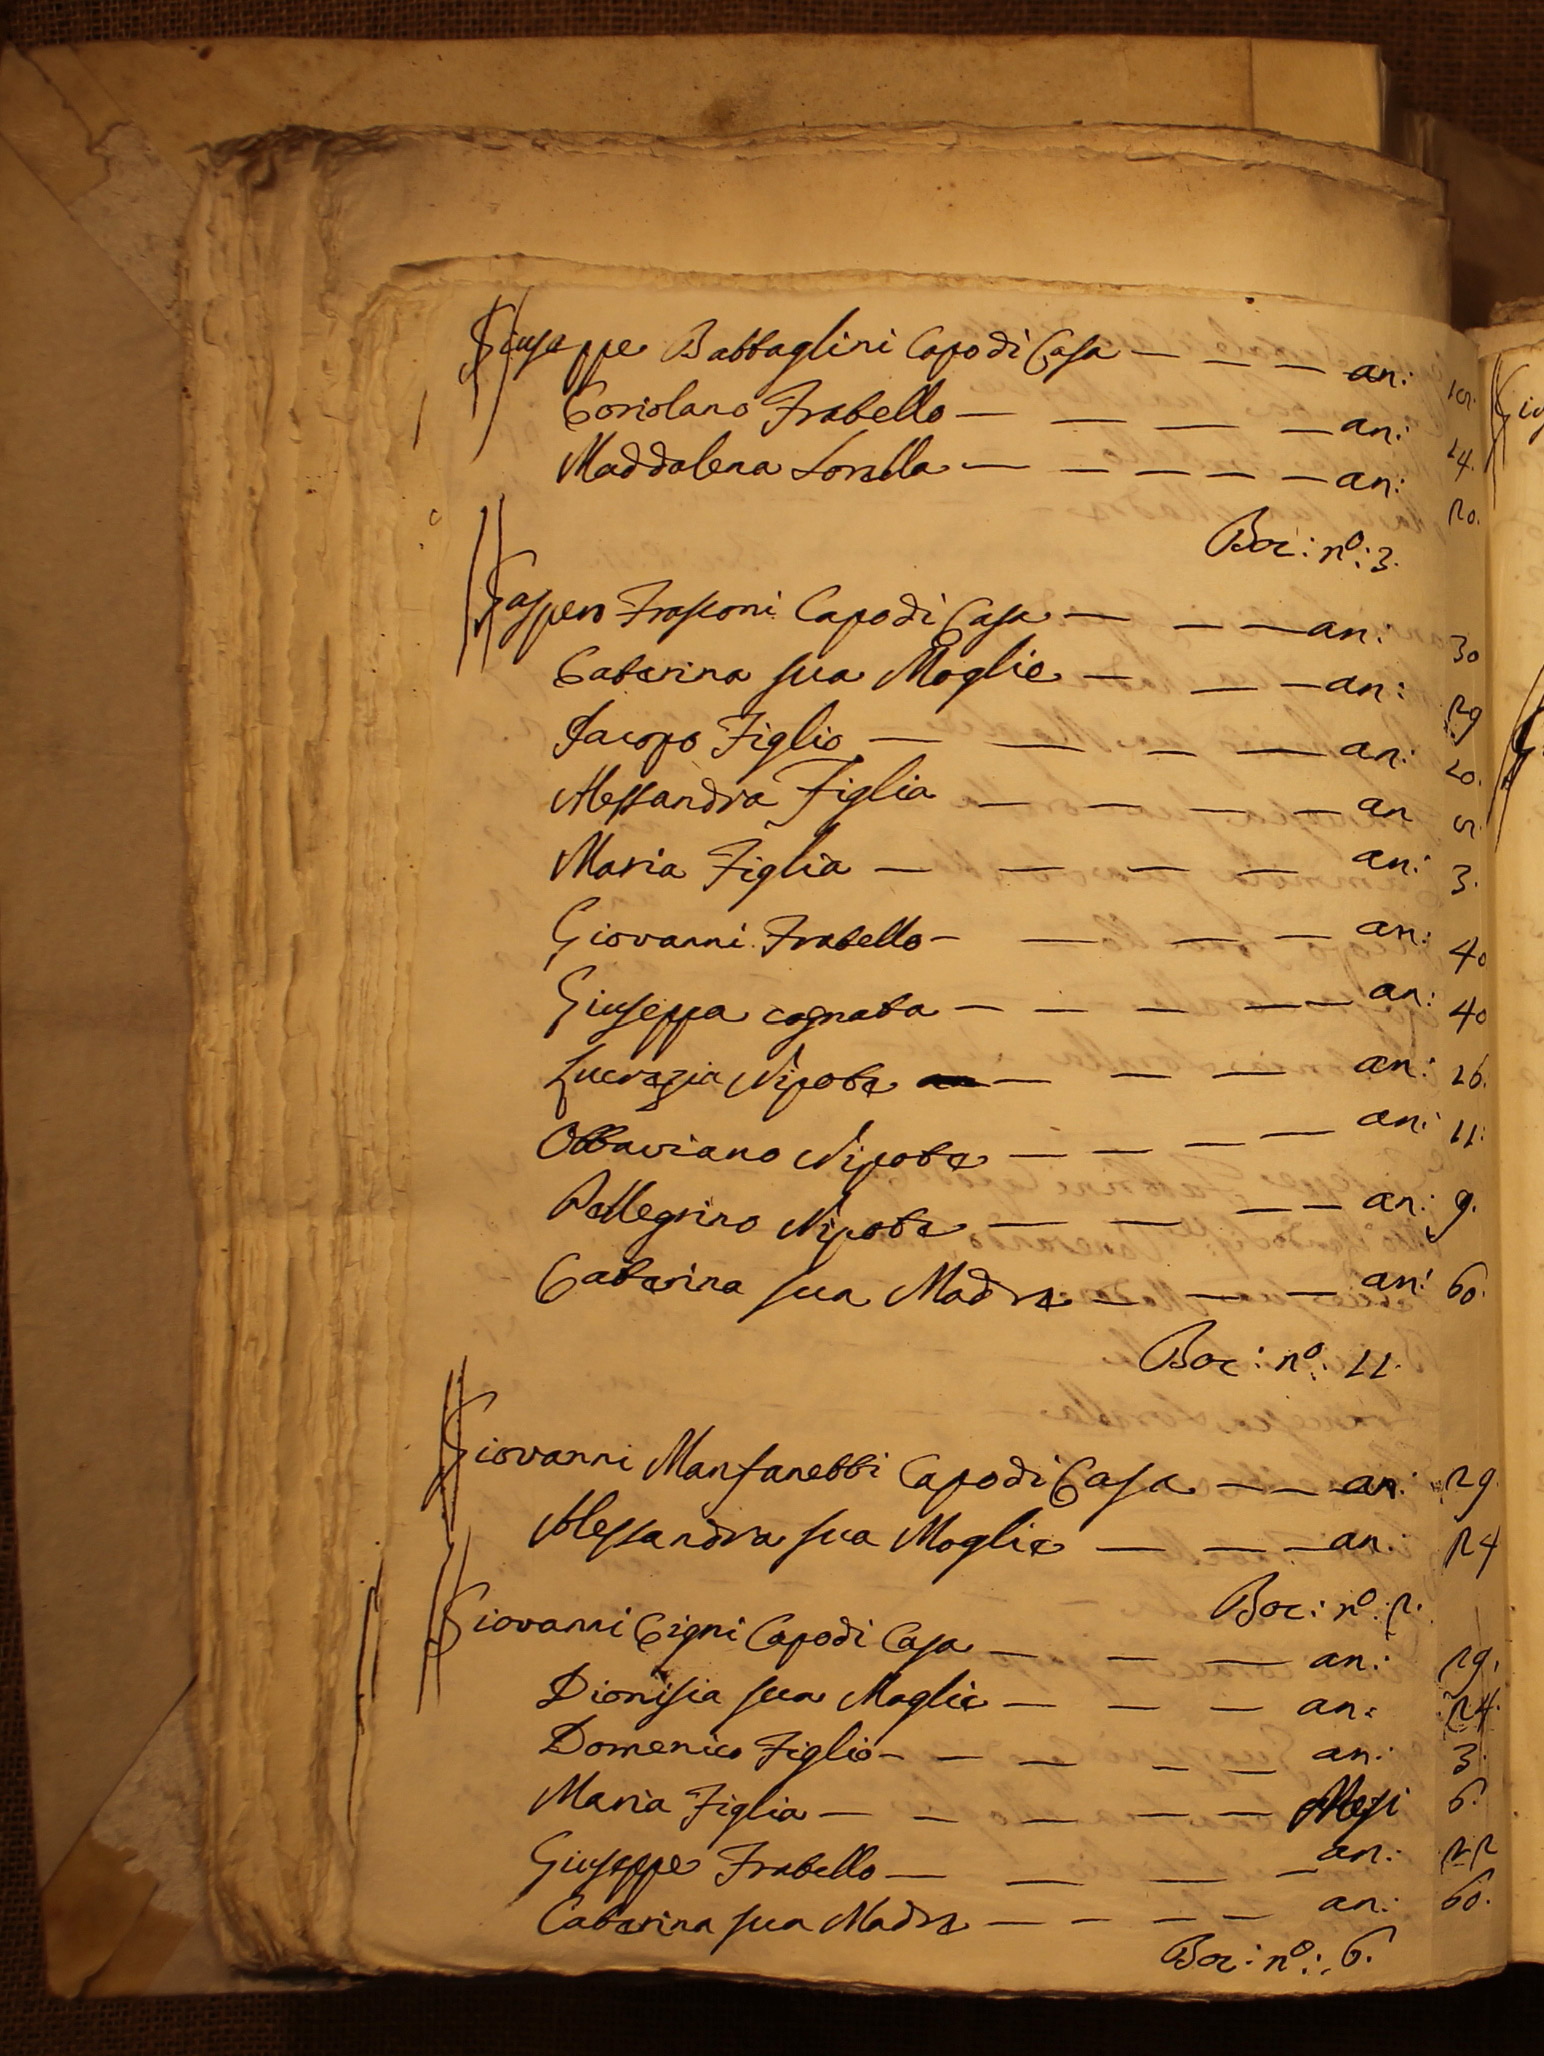 Giuseppe Battaglini Capo di Casa — — — an:
Coriolano Fratello — — — — an: 14.
Maddalena Sorella — — — — — an: 20.
Boc: nº: 3.
Gaspero Frasconi Capo di Casa — — — an: 30
Caterina sua Moglie — — — an: 29
Jacopo Figlio — — — — an: 10.
Alessandra Figlia — — — — an 5.
Maria Figlia — — — — an: 3.
Giovanni Fratello — — — — an: 40
Giuseppa cognata — — — — — an: 40
Lucrezia Nipote — — — an: 16.
Ottaviano Nipote — — — — an: 11:
Pellegrino Nipote — — — — an: 9.
Caterina sua Madre — — — an: 60.
Boc: nº: 11.
Giovanni Manfanetti Capo di Casa — — — an: 29.
Alessandra sua Moglie — — — an: 24
Boc: nº: 2.
Giovanni Cigni Capo di Casa — — — an: 29.
Dionisia sua Moglie — — — an: 24.
Domenico Figlio — — — — — an: 3.
Maria Figlia — — — — — Mesi 6.
Giuseppe Fratello — — — — an: 22
Caterina sua Madre — — — — an: 60.
Boc: nº: 6.